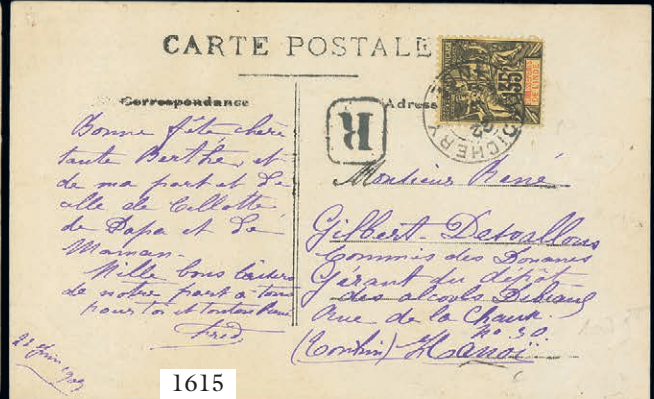 CARTE POSTALE
Correspondance
Adresse
R
35
DICHERY
Bonne fête chère
tante Berthe et
de ma part et de
celle de
de Papa et de
Maman.
Mille bons baisers
de notre part à tous
pour toi et tonton René
Fred
21 Juin 1909
Monsieur René
Gilbert Desvallons
Commis des Douanes
Gérant du dépôt
des alcools
rue de la Chaux.
No 30.
(Tonkin) Hanoï
1615